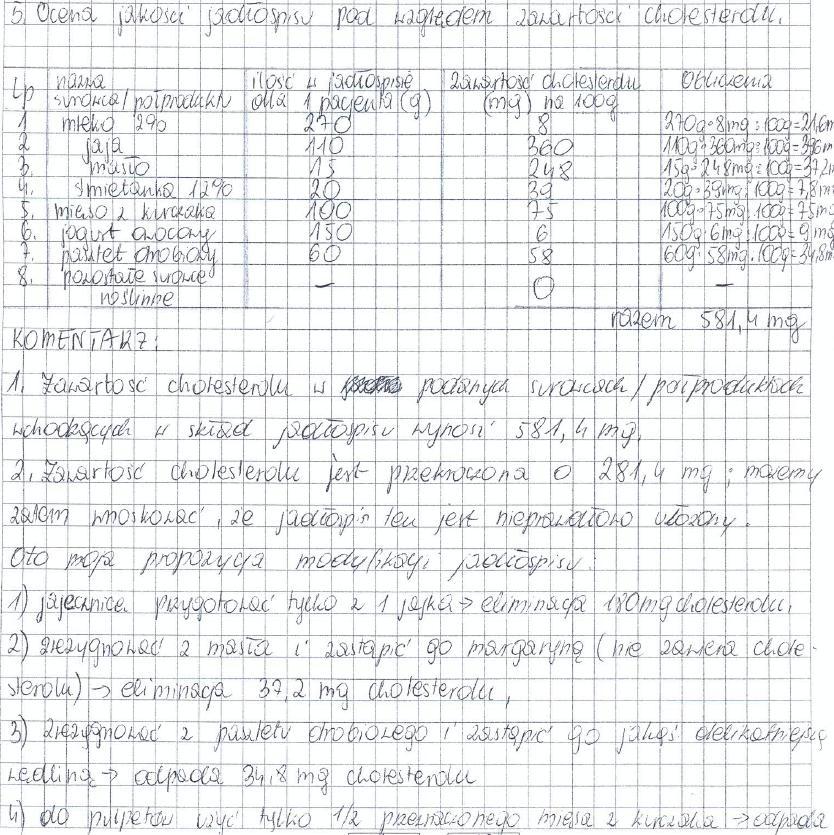 5. Ocena jakości jadłospisu pod względem zawartości cholesterolu.
Lp nazwa surowca/półproduktu ilość w jadłospisie dla 1 pacjenta (g) zawartość cholesterolu (mg) na 100g Obliczenia
1 mleko 2% 270 8 270g·8mg:100g=21,6m
2 jaja 110 360 110g·360mg:100g=396m
3. masło 15 248 15g·248mg:100g=37,2m
4. śmietanka 12% 20 39 20g·39mg:100g=7,8m
5. mięso z kurczaka 100 75 100g·75mg:100g=75mg
6. jogurt owocowy 150 6 150g·6mg:100g=9mg
7. pasztet drobiowy 60 58 60g·58mg:100g=34,8m
8. pozostałe surowce – 0 –
roślinne
razem 581,4 mg
KOMENTARZ:
1. Zawartość cholesterolu w podanych surowcach/półproduktach
wchodzących w skład jadłospisu wynosi 581,4 mg.
2. Zawartość cholesterolu jest przekroczona o 281,4 mg; możemy
zatem wnioskować, że jadłospis ten jest nieprawidłowo ułożony.
Oto moja propozycja modyfikacji jadłospisu:
1) jajecznicę przygotować tylko z 1 jajka → eliminacja 180mg cholesterolu,
2) zrezygnować z masła i zastąpić go margaryną (nie zawiera chole-
sterolu) → eliminacja 37,2 mg cholesterolu,
3) zrezygnować z pasztetu drobiowego i zastąpić go jakąś delikatniejszą
wędliną → odpada 34,8 mg cholesterolu
4) do pulpetów użyć tylko 1/2 przeznaczonego mięsa z kurczaka → odpada